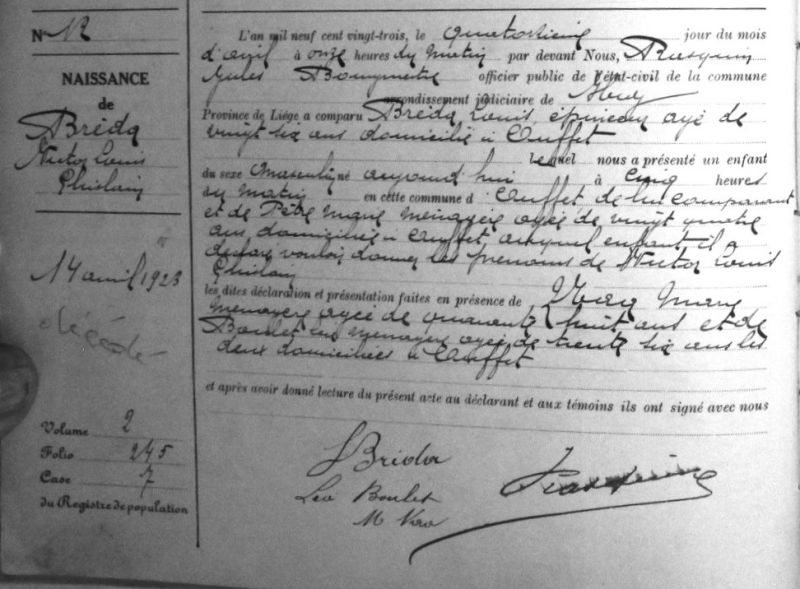 N° 12
NAISSANCE
de
Bréda
Victor Louis
Ghislain
14 avril 1923
décédé
Volume 2
Folio 245
Case 7
du Registre de population
L'an mil neuf cent vingt-trois, le quatorzième jour du mois
d'avril à onze heures du matin par devant Nous,
Jules Bourgmestre officier public de l'état-civil de la commune
arrondissement judiciaire de Huy
Province de Liége a comparu Bréda Louis, âgé de
vingt six ans domicilié à Ouffet
lequel nous a présenté un enfant
du sexe Masculin né aujourd'hui à cinq heures
du matin en cette commune d'Ouffet de lui comparant
et de Pêtre Marie ménagère agée de vingt quatre
ans domiciliée à Ouffet, auquel enfant il a
déclaré vouloir donner les prénoms de Victor Louis
Ghislain
les dites déclaration et présentation faites en présence de Marie
Ménagère agée de quarante huit ans et de
Boulet Léa ménagère agée de trente six ans les
deux domiciliées à Ouffet
et après avoir donné lecture du présent acte au déclarant et aux témoins ils ont signé avec nous
L Bréda
Lea Boulet
M